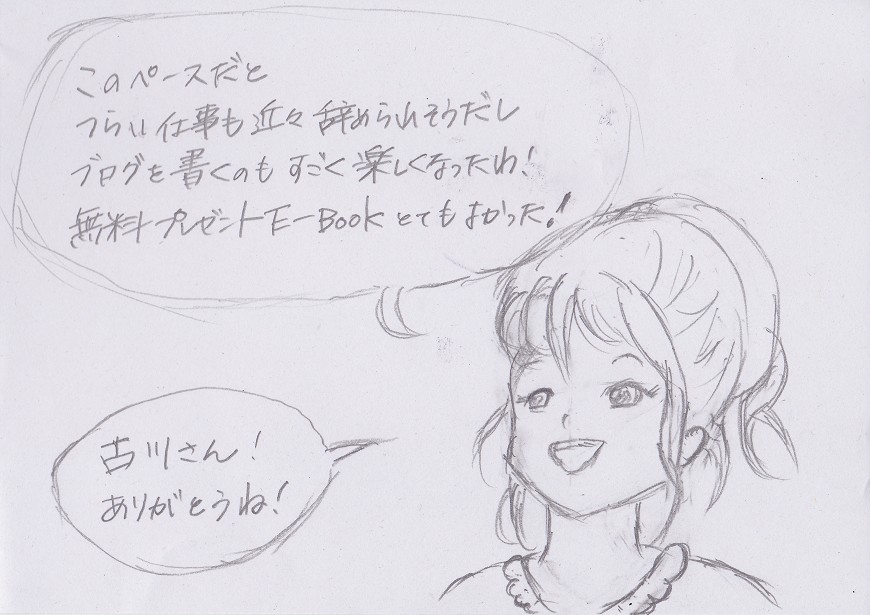 このペースだと
つらい仕事も近々辞められそうだし
ブログを書くのもすごく楽しくなったわ!
無料プレゼントE-Bookとてもよかった!
古川さん!
ありがとうね!